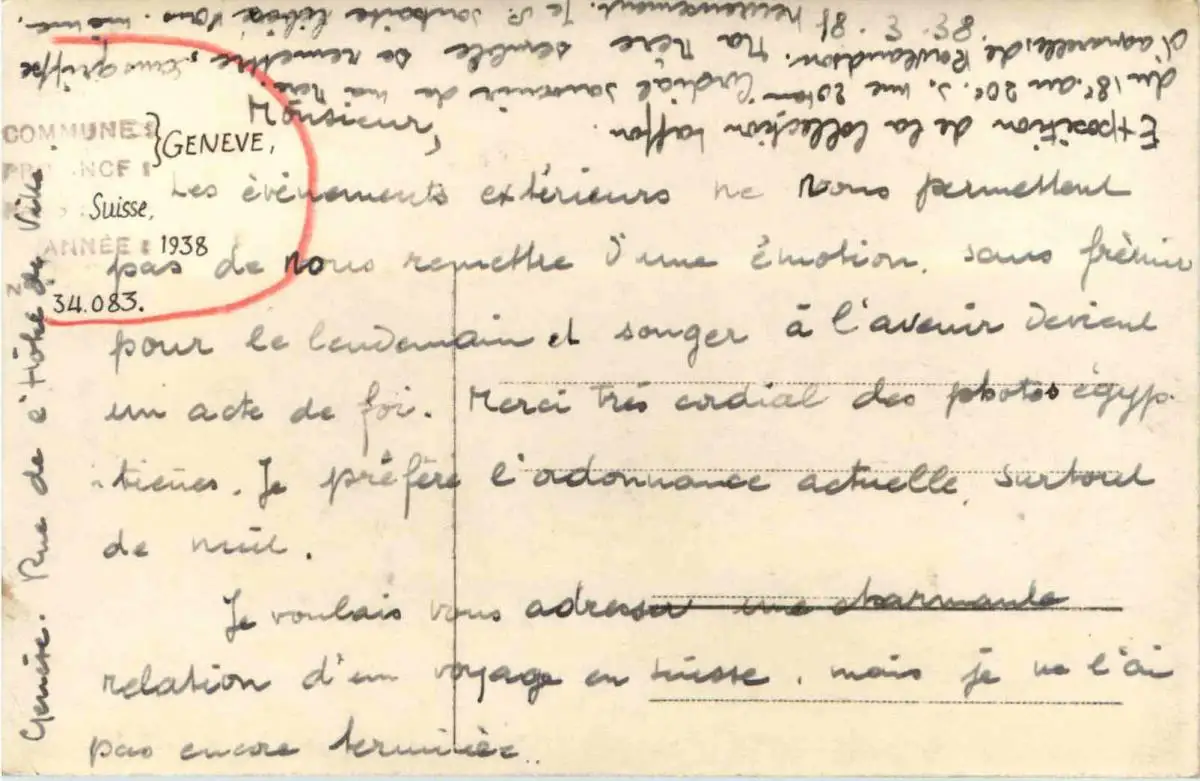 COMMUNE :
PROVINCE :
ANNÉE :
GENEVE,
Suisse,
1938
34.083.
Monsieur,
Les évènements extérieurs ne nous permettent
pas de nous remettre d'une émotion, sans frémir
pour le lendemain et songer à l'avenir devient
un acte de foi. Merci très cordial des photos égyp-
tienes. Je préfère l'ordonnance actuelle, surtout
de nuit.
Je voulais vous adresser une charmante
relation d'un voyage en Suisse, mais je ne l'ai
pas encore terminée..
Exposition de la Collection
du 18e au 20e s, une Cordial souvenir de ma Mère
d'aquarelles de Rowlandson. Ma Mère semble se remettre,
heureusement. Je souhaite vous même,
18. 3. 38.
Genève. Rue de l'Hôtel de Ville